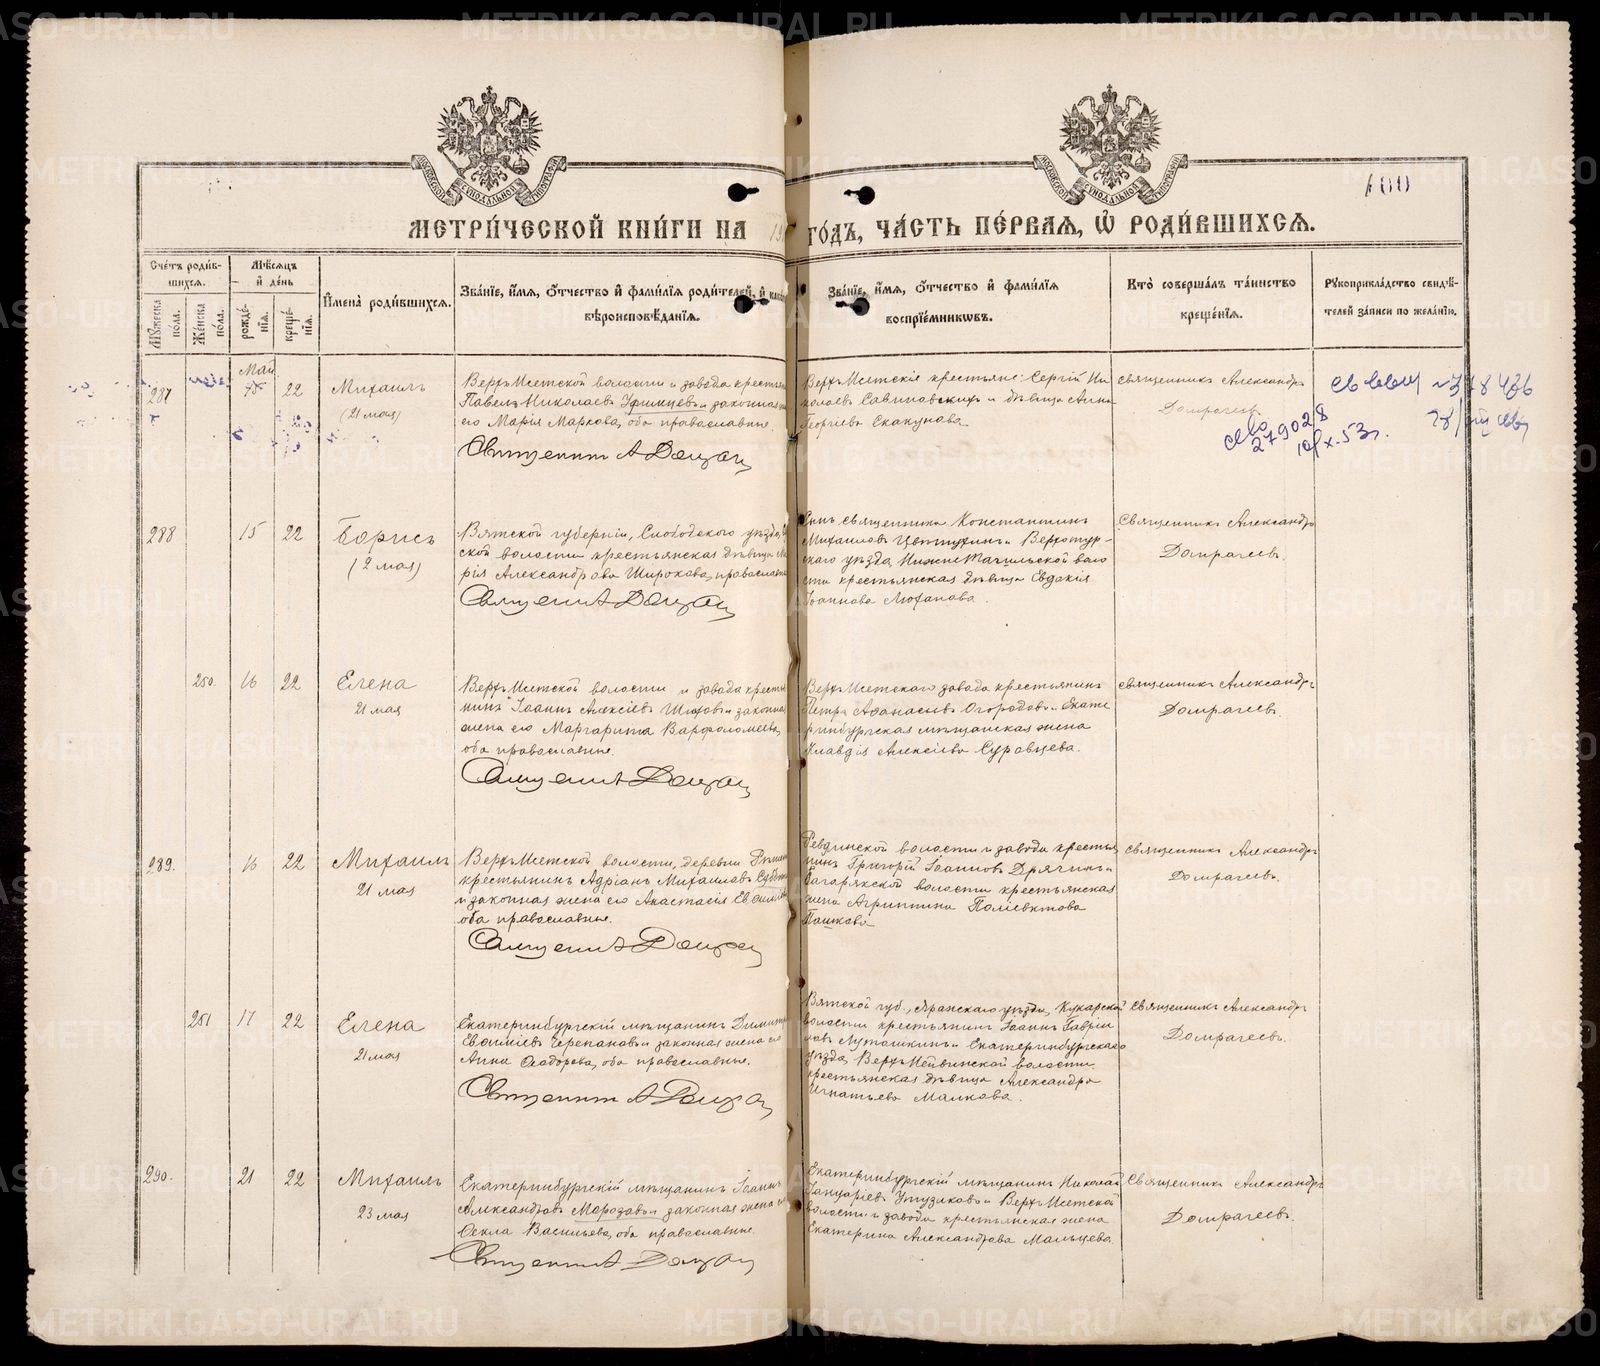 МЕТРИ́ЧЕСКОЙ КНИ́ГИ НА 19
ГО́ДЪ, ЧА́СТЬ ПЕ́РВАЯ, Ѽ РОДИ́ВШИХСЯ.
100
Сче́тъ роди́в-
шихся.
Мѣ́сяцъ
и҆ де́нь
Мꙋ́жеска по́ла.
Же́нска по́ла.
рожде́-нїѧ.
креще́-нїѧ.
И҆мена̀ роди́вшихся.
Зва́нїе, и҆́мя, ѻ҆́тчество и҆ фами́лїя роди́телей, и҆ како́
вѣроисповѣ́данїя.
Зва́нїе, и҆́мя, ѻ҆́тчество и҆ фами́лїя
воспрїе́мникѡвъ.
Кто̀ соверша́лъ та́инство
креще́нїя.
Рꙋкоприкла́дство свидѣ́-
телей за́писи по жела́нїю.
287
Май
22
Михаилъ
(21 мая)
Верхъ-Исетской волости и завода крестья
Павелъ Николаевъ Уфимцевъ и законная
его Марія Маркова, оба православные.
Священникъ А Домрач
Верхъ-Исетскіе крестьяне: Сергій Ни-
колаевъ Савиновскихъ и дѣвица Анна
Георгіева Скакунова.
Священникъ Александръ
Домрачеевъ
279028
288
15
22
Борисъ
(2 мая)
Вятской губерніи, Слободского уѣзда,
ской волости крестьянская дѣвица Ма
рія Александрова Широкова, православн
Священ А Домрач
Сынъ священника Константинъ
Михаиловъ Цвѣтухинъ и Верхотур-
скаго уѣзда, Нижне-Тагильской воло
сти крестьянская дѣвица Евдокія
Іоаннова Люханова.
Священникъ Александръ
Домрачеевъ.
250.
16
22
Елена
21 мая
Верхъ-Исетской волости и завода кресть
нинъ Іоаннъ Алексіевъ Шиховъ и законна
жена его Маргарита Варфоломеева,
оба православные.
Священ А Домрач
Верхъ-Исетскаго завода крестьянинъ
Петръ Аѳанасьевъ Огородовъ и Екате
ринбургская мѣщанская жена
Клавдія Алексіева Суровцева.
Священникъ Александръ
Домрачеевъ.
289.
16
22
Михаилъ
21 мая
Верхъ-Исетской волости, деревни
крестьянинъ Адріанъ Михаиловъ
и законная жена его Анастасія
оба православные.
Священ А Домрач
Ревдинской волости и завода крестья
нинъ Григорій Іоанновъ Дрягинъ и
Багарякской волости крестьянская
жена Агриппина Поліевктова
Пашкова
Священникъ Александръ
Домрачеевъ.
251
17
22
Елена
21 мая
Екатеринбургскій мѣщанинъ Димитрі
Евѳиміевъ Черепановъ и законная жена его
Анна Ѳеодорова, оба православные.
Священник А Домрач
Вятской губ., Яранскаго уѣзда, Кукарской
волости крестьянинъ Іоаннъ Гаврии
ловъ Луташкинъ и Екатеринбургскаго
уѣзда, Верхъ-Нейвинской волости
крестьянская дѣвица Александра
Игнатьева Малкова.
Священникъ Александръ
Домрачеевъ.
290.
21
22
Михаилъ
23 мая
Екатеринбургскій мѣщанинъ Іоаннъ
Александровъ Морозовъ и законная жена
Ѳекла Васильева, оба православные.
Священник А Домрач
Екатеринбургскій мѣщанинъ Николай
Ианнуаріевъ и Верхъ-Исетской
волости и завода крестьянская жена
Екатерина Александрова Мальцева.
Священникъ Александръ
Домрачеевъ.
METRIKI.GASO-URAL.RU